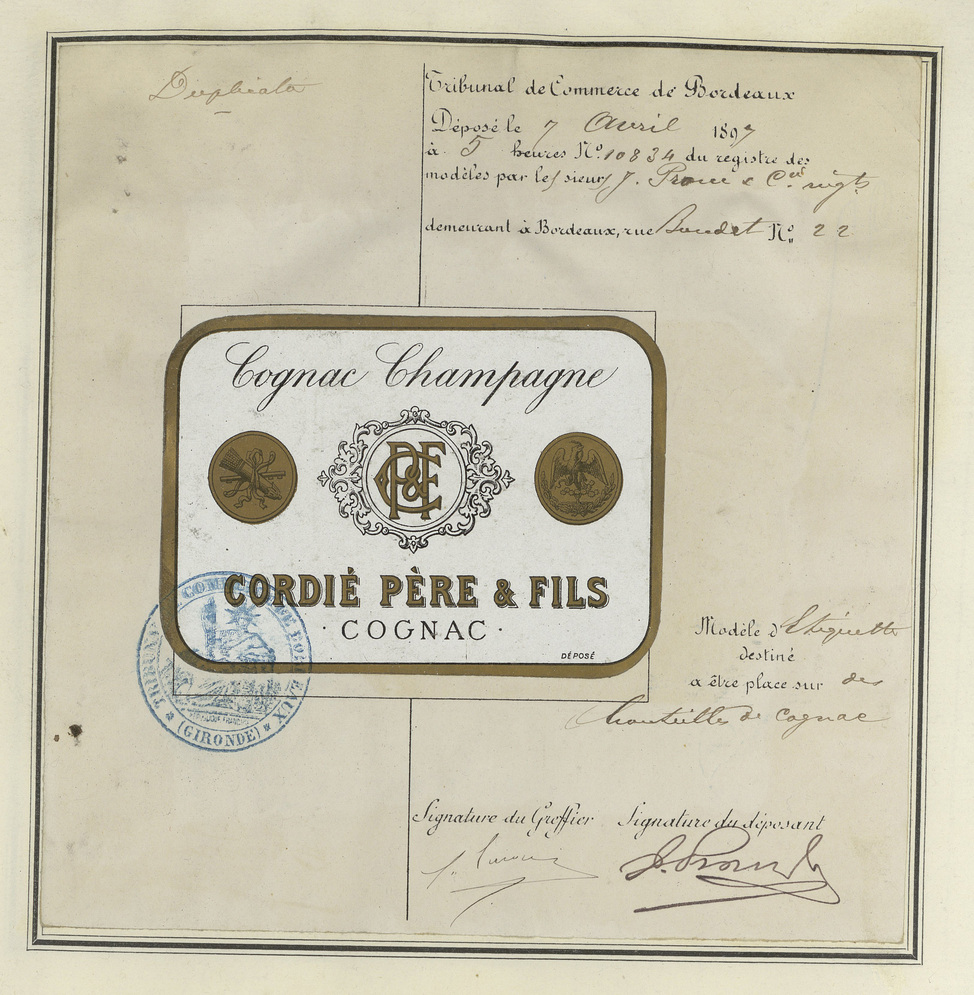 Duplicata
Tribunal de Commerce de Bordeaux
Déposé le 7 Avril 1897
à 5 heures Nº 10834 du registre des
modèles par les sieurs J. & Cie négts
demeurant à Bordeaux, rue Nº 22
Cognac Champagne
CP&F
CORDIÉ PÈRE & FILS
· COGNAC ·
DÉPOSÉ
TRIBUNAL DE COMMERCE DE BORDEAUX
RÉPUBLIQUE FRANÇAISE
* (GIRONDE) *
Modèle d'Etiquette
destiné
a être place sur des
bouteilles de cognac
Signature du Greffier Signature du déposant